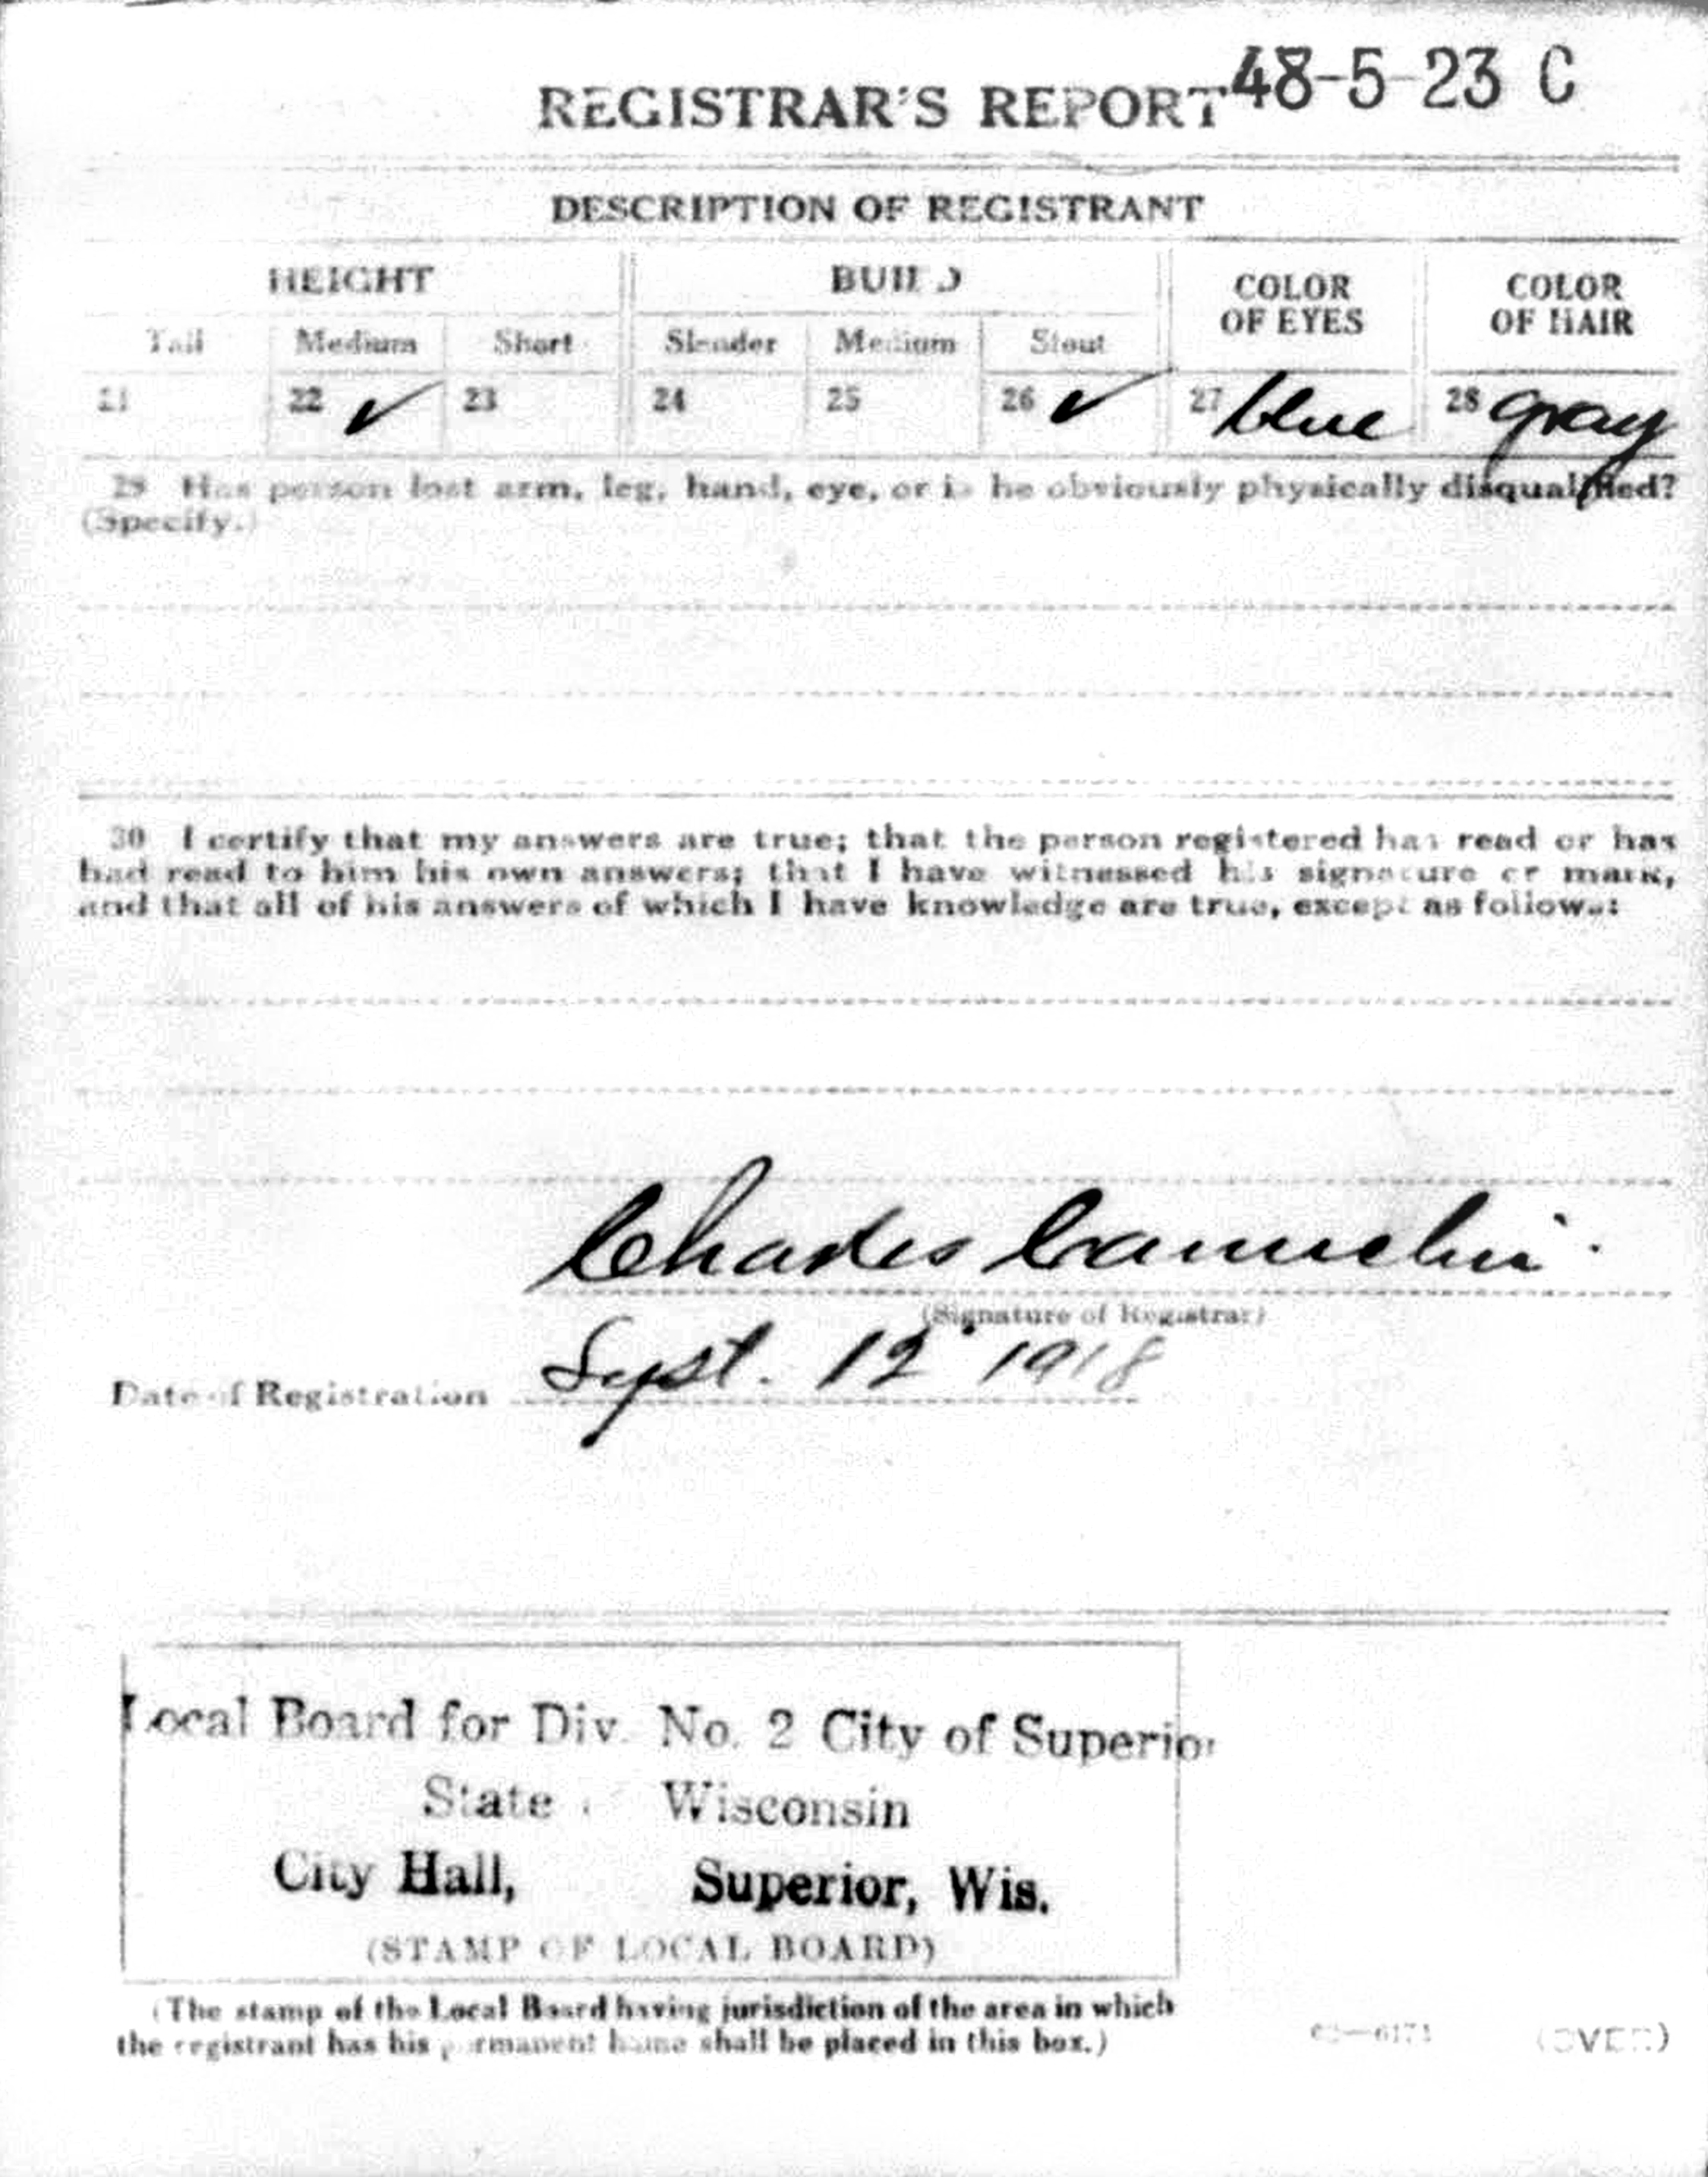 REGISTRAR'S REPORT 48-5-23 C
DESCRIPTION OF REGISTRANT
HEIGHT BUILD COLOR OF EYES COLOR OF HAIR
Tall Medium Short Slender Medium Stout
21 22 ✓ 23 24 25 26 ✓ 27 blue 28 gray
29 Has person lost arm, leg, hand, eye, or is he obviously physically disqualified?
(Specify.)
30 I certify that my answers are true; that the person registered has read or has
had read to him his own answers; that I have witnessed his signature or mark,
and that all of his answers of which I have knowledge are true, except as follows:
Charles
(Signature of Registrar)
Date of Registration Sept. 12 1918
Local Board for Div. No. 2 City of Superior
State Wisconsin
City Hall, Superior, Wis.
(STAMP OF LOCAL BOARD)
(The stamp of the Local Board having jurisdiction of the area in which
the registrant has his permanent home shall be placed in this box.)
(OVER)